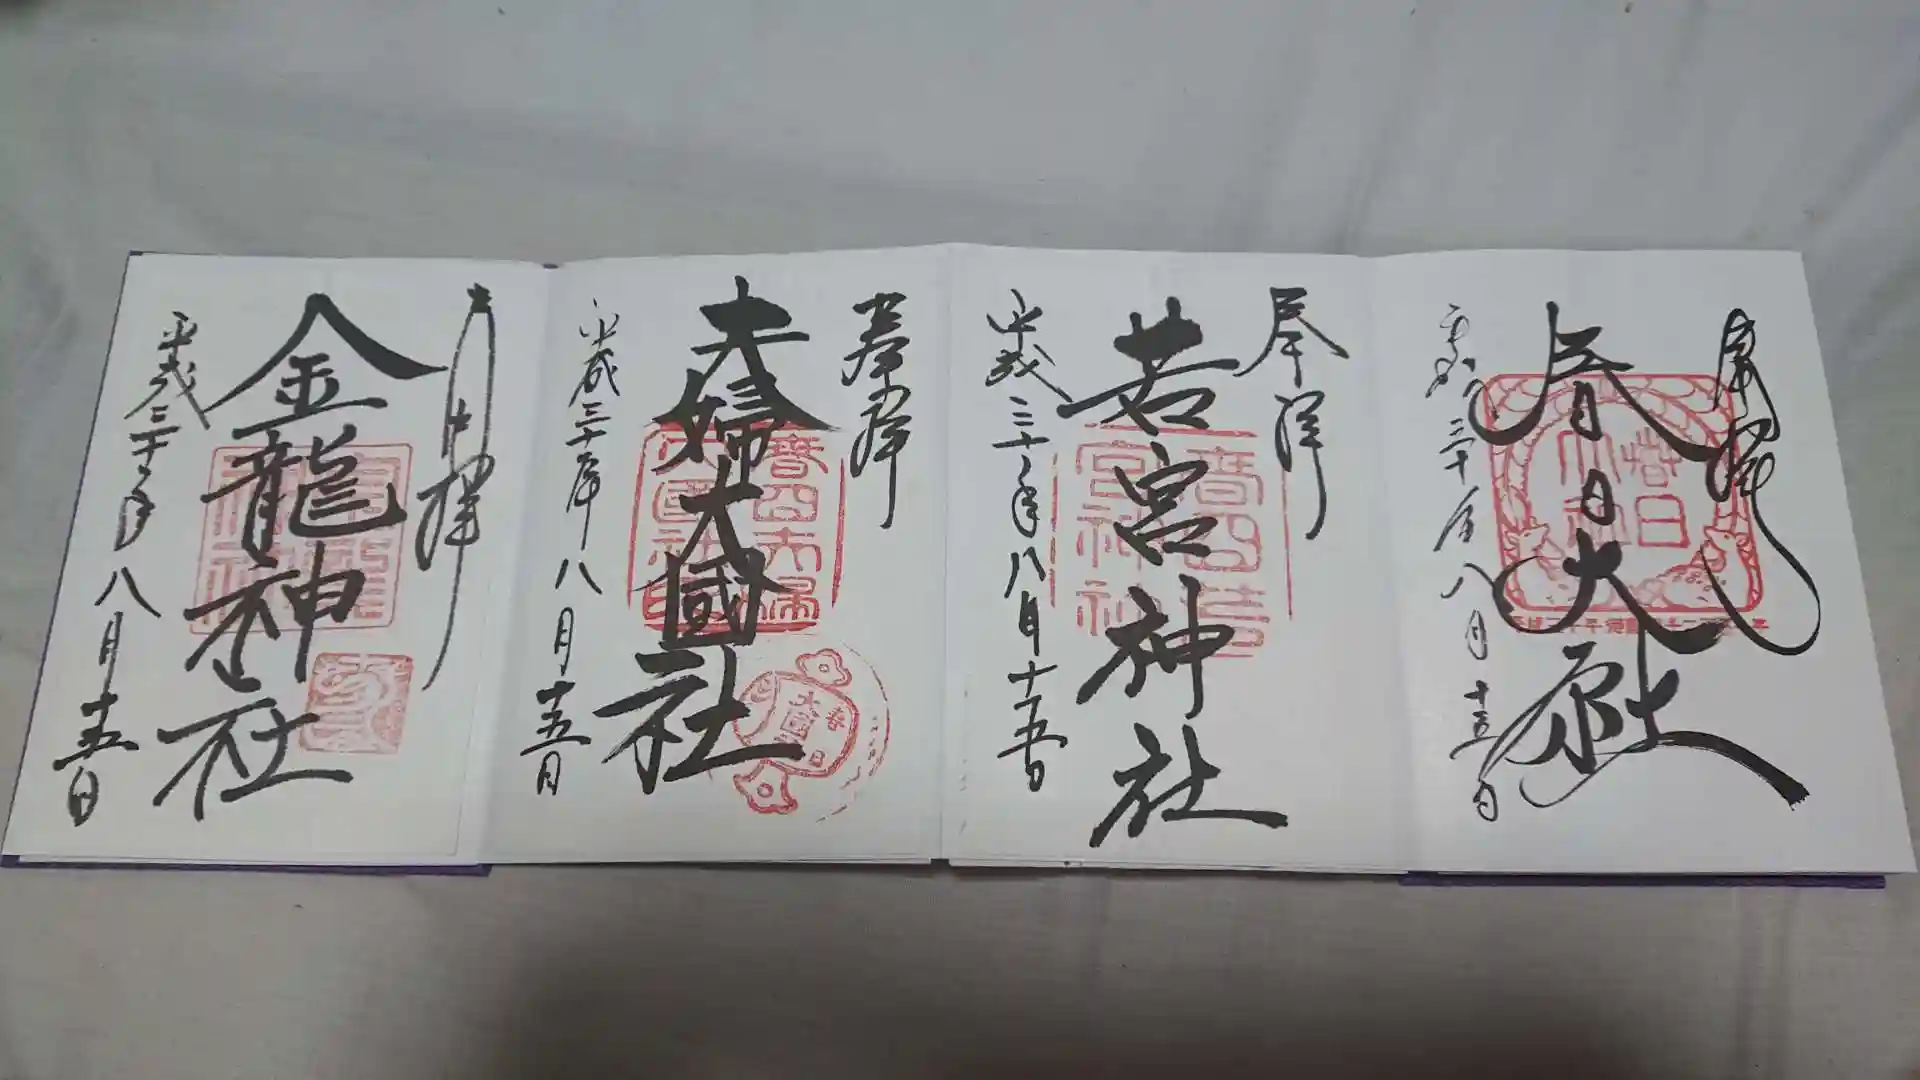 奉拝
春日大社
平成三十年八月十五日
奉拝
若宮神社
平成三十年八月十五日
奉拝
夫婦大國社
平成三十年八月十五日
奉拝
金龍神社
平成三十年八月十五日